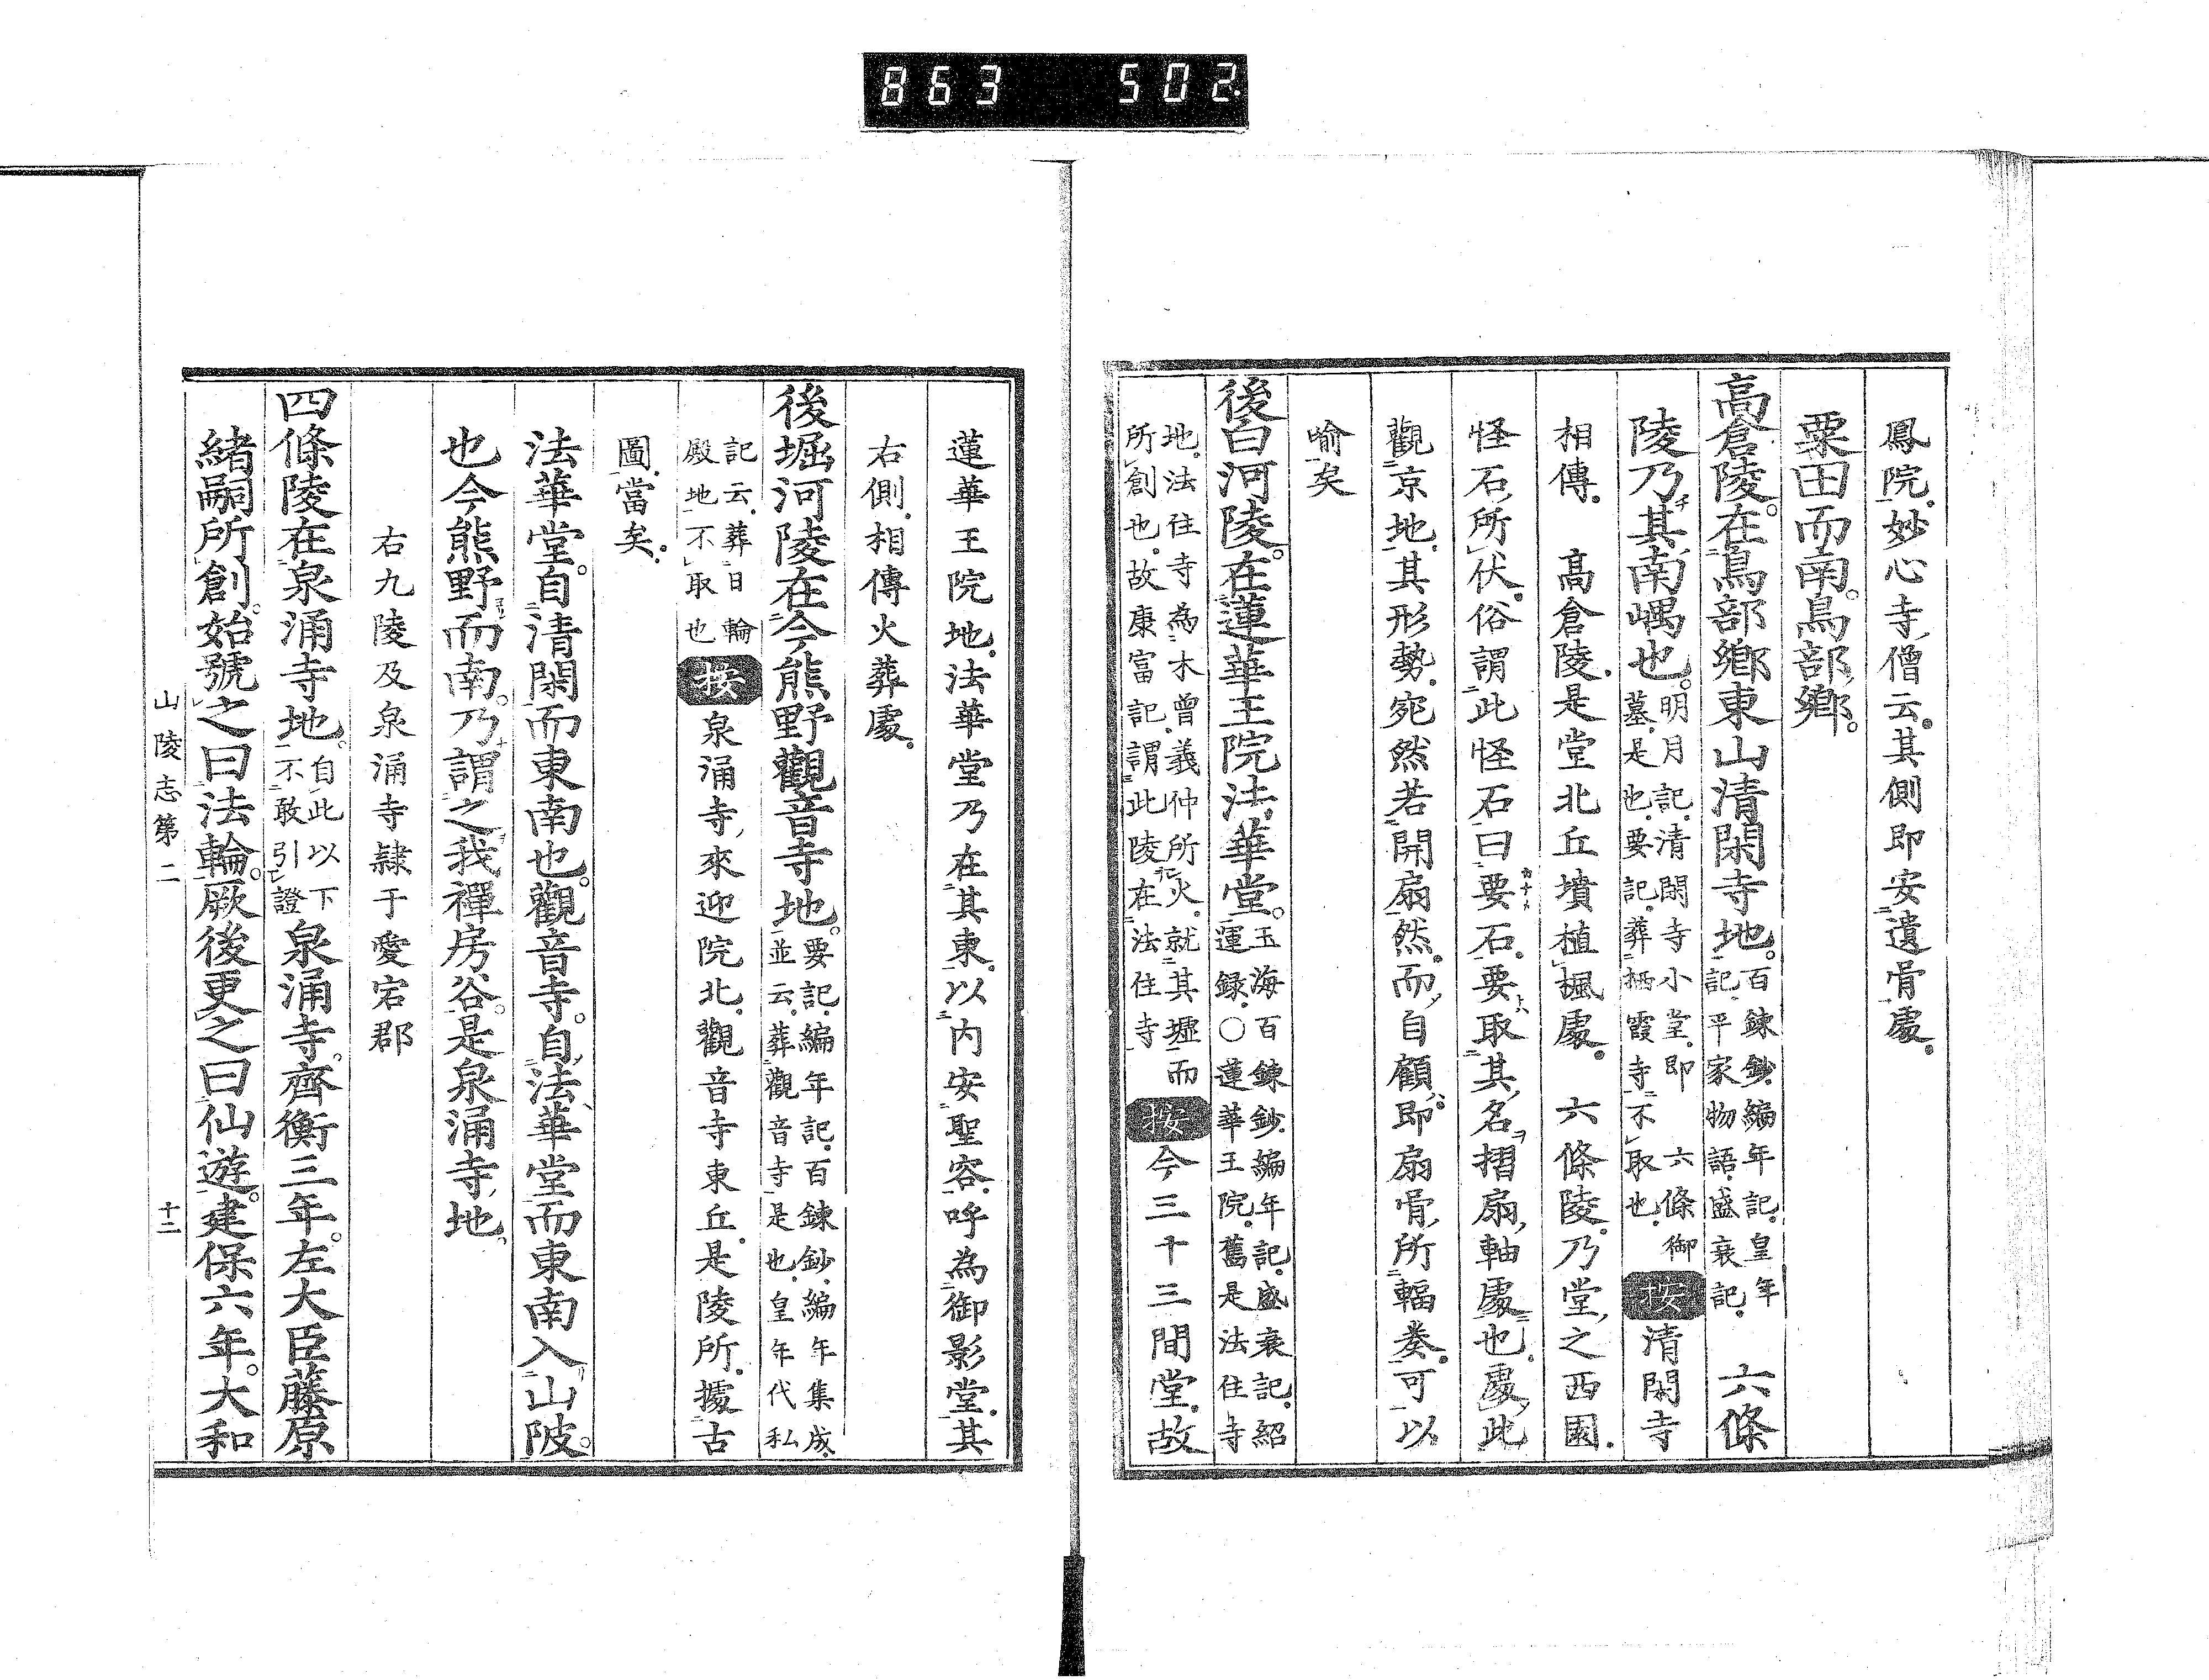 863 502
鳳院妙心寺僧云其側即安遺骨處
粟田而南鳥部鄉
高倉陵在鳥部鄉東山清閑寺地百鍊鈔編年記皇年記平家物語盛衰記六條
陵乃其南嵎也明月記清閑寺小堂即六條御墓是也要記葬栖霞寺不取也按清閑寺
相傳高倉陵是堂北丘墳植楓處六條陵乃堂之西園
怪石所伏俗謂此怪石曰要石要取其名摺扇軸處也處此
觀京地其形勢宛然若開扇然而自顧即扇骨所輻奏可以
喻矣
後白河陵在蓮華王院法華堂玉海百鍊鈔編年記盛衰記紹運録〇蓮華王院舊是法住寺
地法住寺為木曾義仲所火就其墟而所創也故康富記謂此陵在法住寺按今三十三間堂故
蓮華王院地法華堂乃在其東以內安聖容呼為御影堂其
右側相傳火葬處
後堀河陵在今熊野觀音寺地要記編年記百鍊鈔編年集成並云葬觀音寺是也皇年代私
記云葬日輪殿地不取也按泉涌寺來迎院北觀音寺東丘是陵所據古
圖當矣
法華堂自清閑而東南也觀音寺自法華堂而東南入山陂
也今熊野而南乃謂之我禪房谷是泉涌寺地
右九陵及泉涌寺隸于愛宕郡
四條陵在泉涌寺地自此以下不敢引證泉涌寺齊衡三年左大臣藤原
緒嗣所創始號之曰法輪厥後更之曰仙遊建保六年大和
山陵志第二
十二